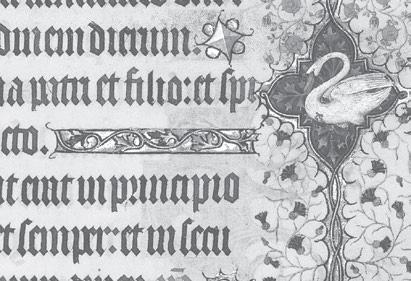 dinem dierum.
a patri et filio: et spi
cto.
t erat in principio
et semper: et in secu